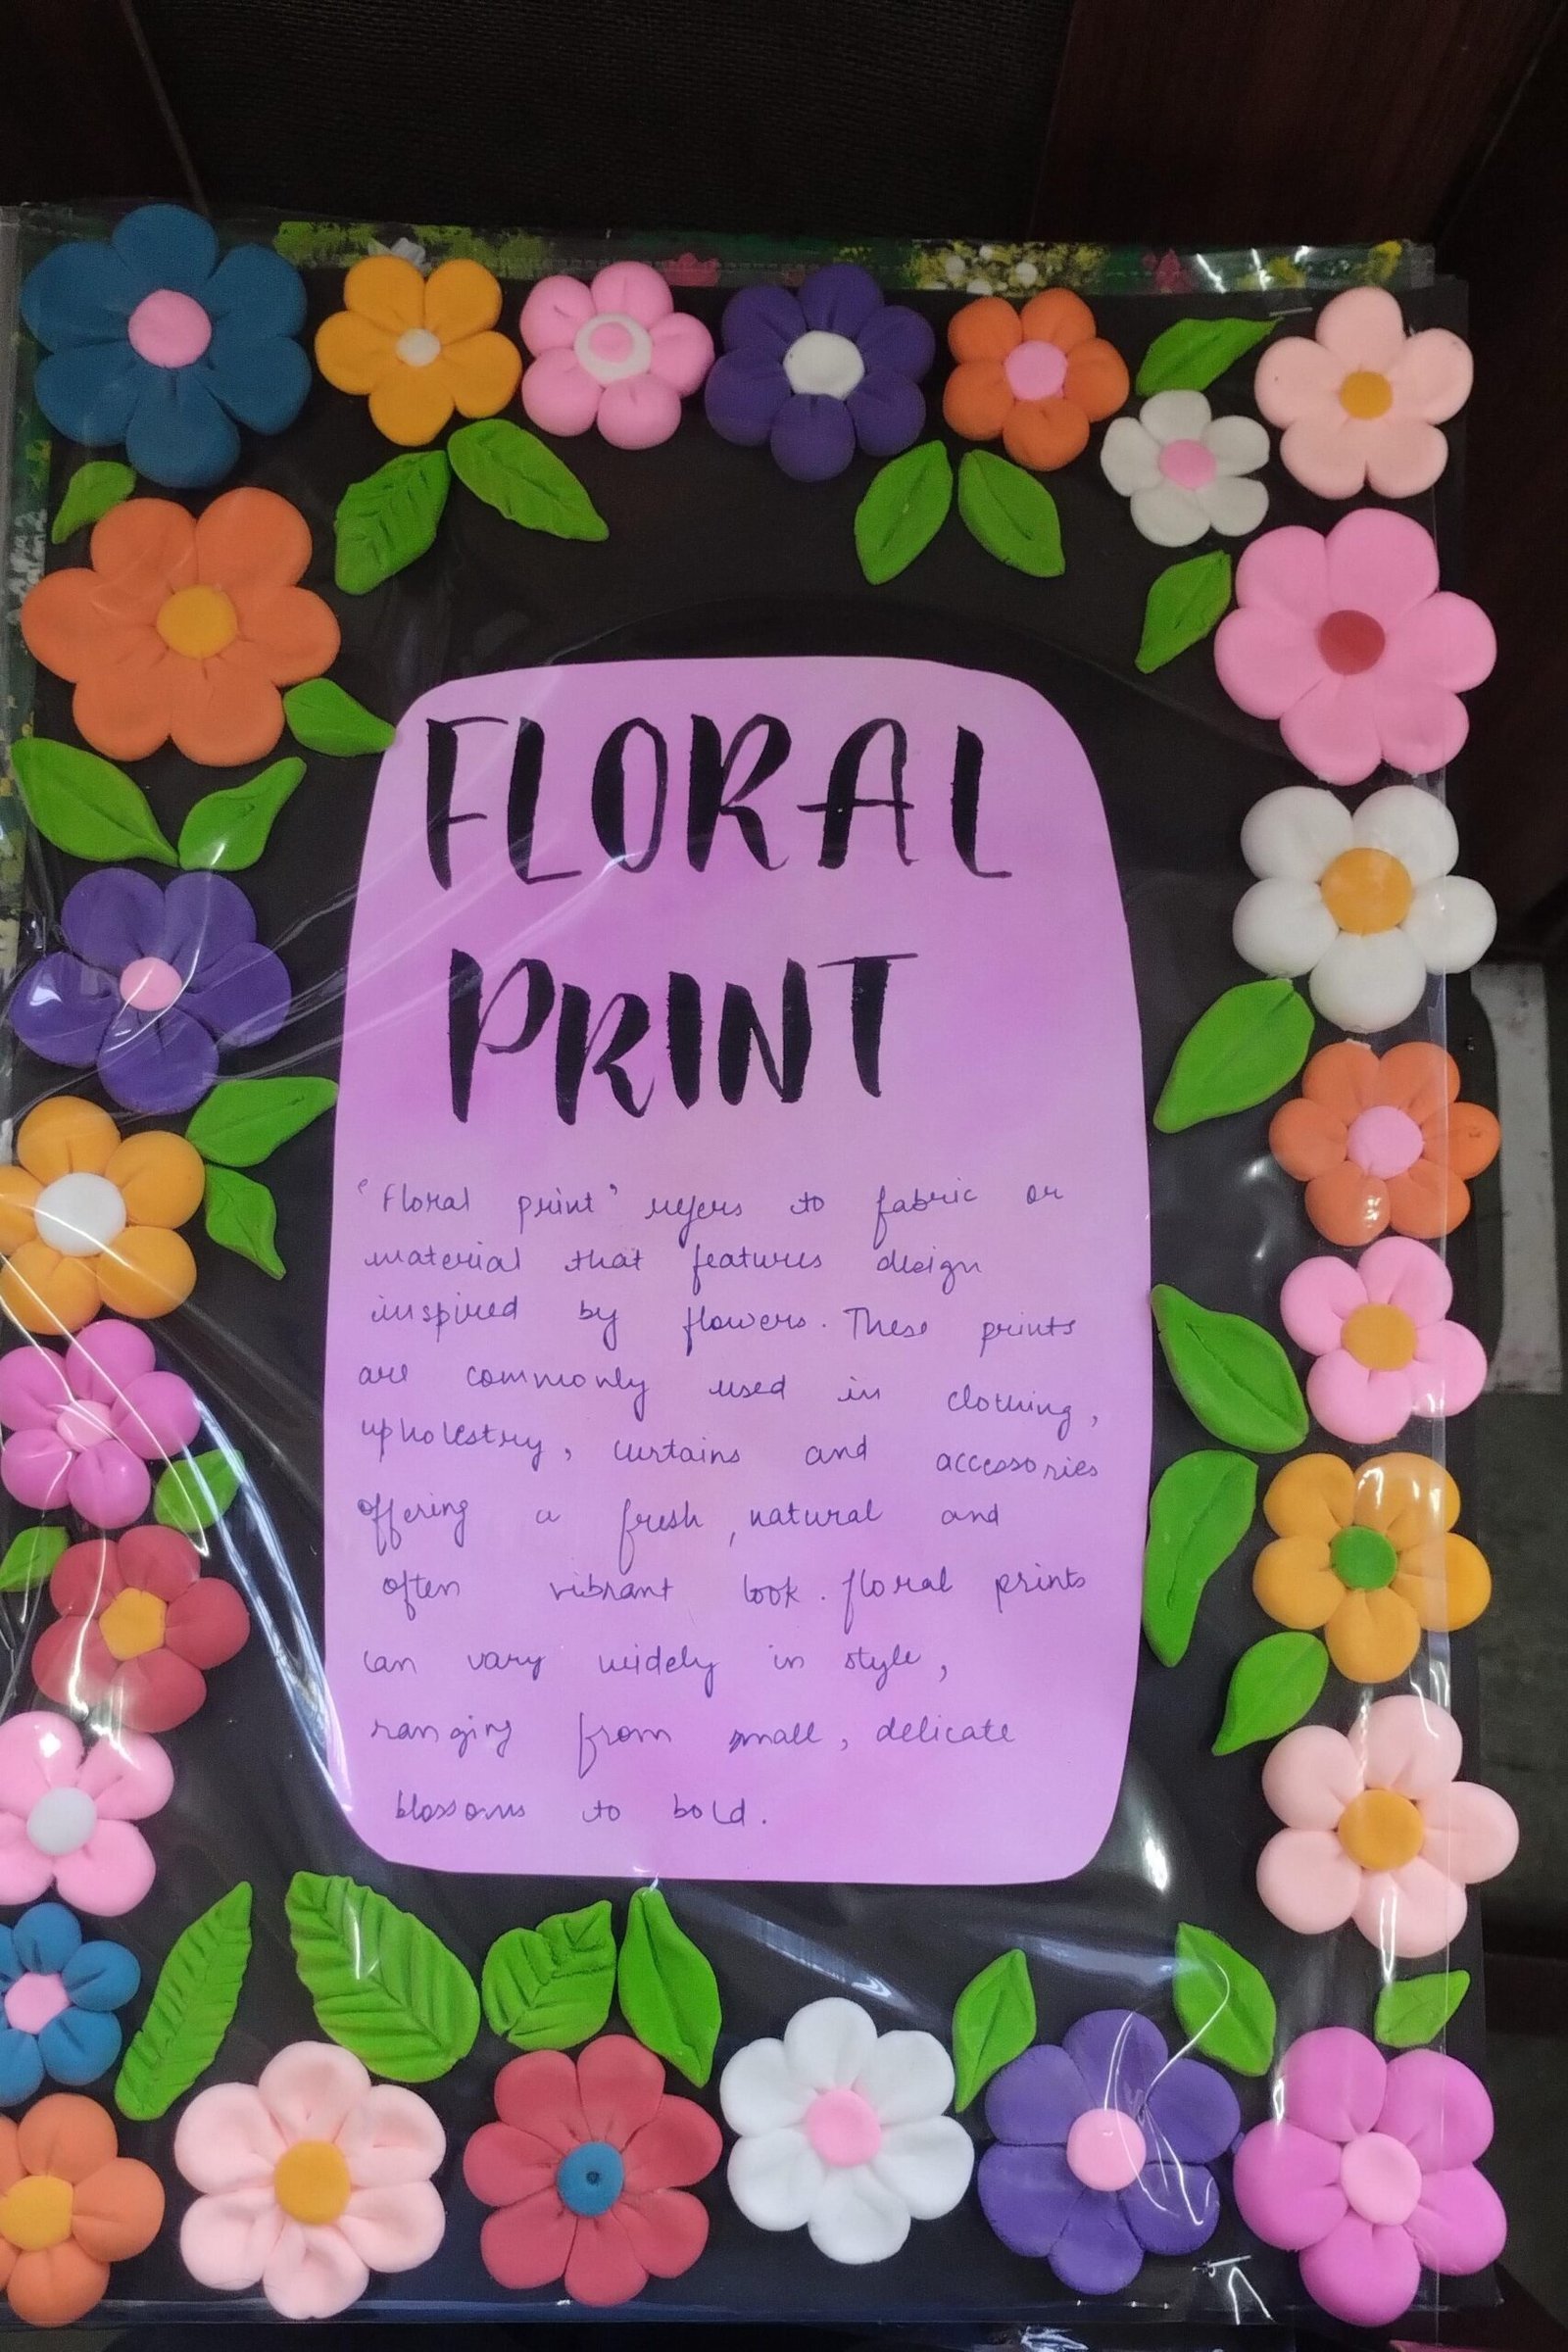 FLORAL
PRINT
"Floral print" refers to fabric or
material that features design
inspired by flowers. These prints
are commonly used in clothing,
upholestry, curtains and accessories
offering a fresh, natural and
often vibrant look. floral prints
can vary widely in style,
ranging from small, delicate
blossoms to bold.